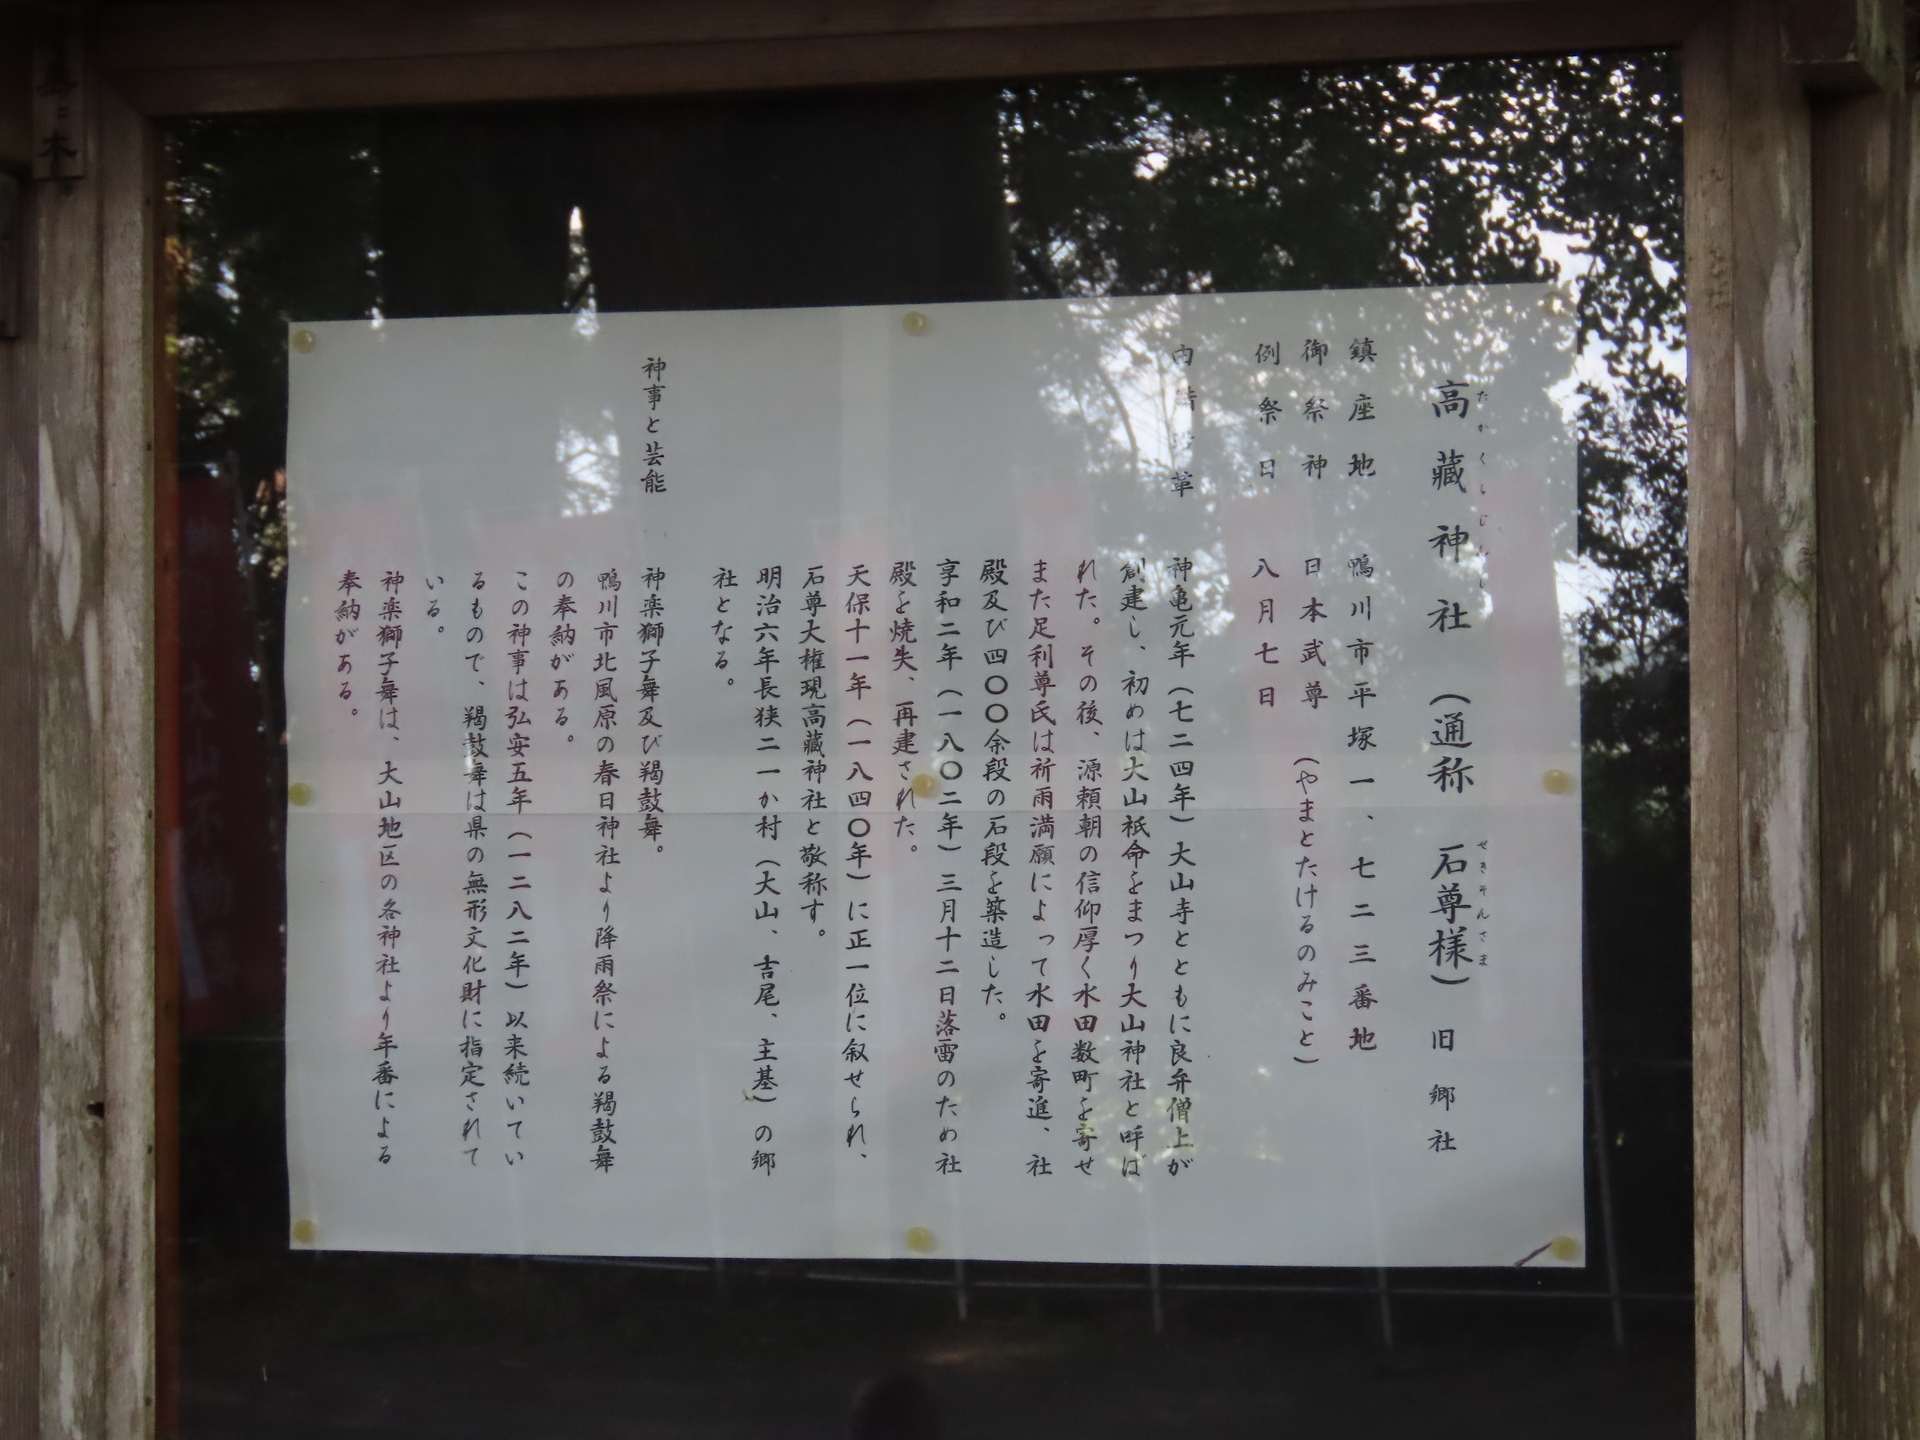 高藏神社（通称　石尊様）旧郷社
たかくらじんじゃ
せきそんさま
鎮座地　鴨川市平塚一、七二三番地
御祭神　日本武尊　（やまとたけるのみこと）
例祭日　八月七日
神亀元年（七二四年）大山寺とともに良弁僧上が
創建し、初めは大山祇命をまつり大山神社と呼ば
れた。その後、源頼朝の信仰厚く水田数町を寄せ
また足利尊氏は祈雨満願によって水田を寄進、社
殿及び四〇〇余段の石段を築造した。
享和二年（一八〇二年）三月十二日落雷のため社
殿を焼失、再建された。
天保十一年（一八四〇年）に正一位に叙せられ、
石尊大権現高藏神社と敬称す。
明治六年長狭二一か村（大山、吉尾、主基）の郷
社となる。
神事と芸能　神楽獅子舞及び羯鼓舞。
鴨川市北風原の春日神社より降雨祭による羯鼓舞
の奉納がある。
この神事は弘安五年（一二八二年）以来続いてい
るもので、羯鼓舞は県の無形文化財に指定されて
いる。
神楽獅子舞は、大山地区の各神社より年番による
奉納がある。